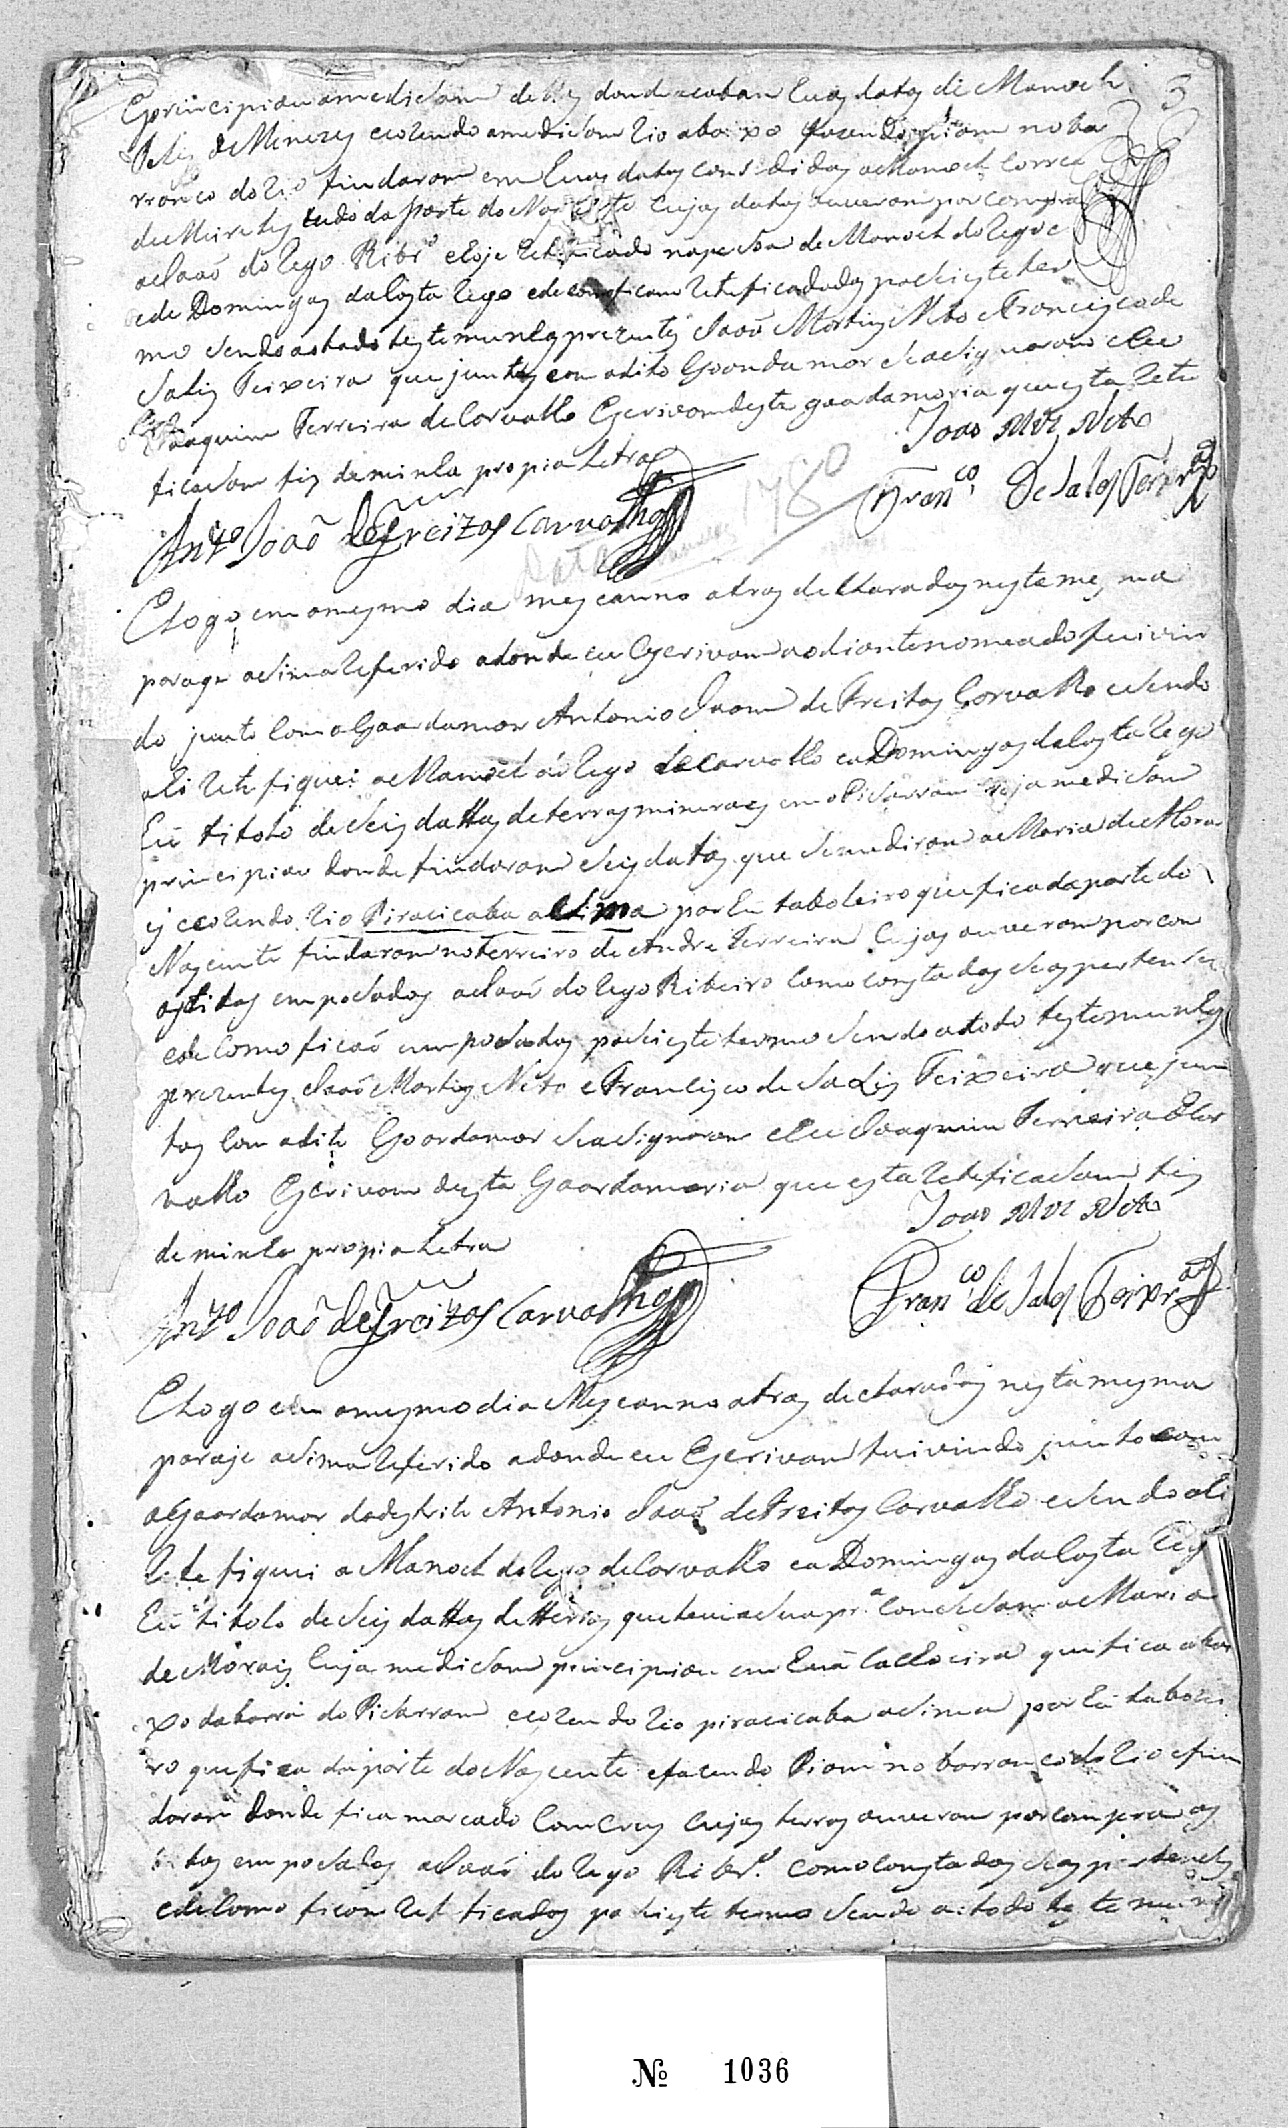 3
E principiou a medisam de las donde acabam huas datas de Manoel
Felis de Menezes e corendo a medisam Rio abaixo fazendo piam no ba
rranco do Rio findaram em huas datas consedidas a Manoel Correa
de Meireles tudo da parte do Nacente cujas datas ouveram por compra
a Joaõ do Rego Ribr.o e foje retificado na pesoa de Manoel do Rego e
e de Domingos da Costa Rego e de como ficam Retificadas pasei este ter
mo sendo a todo testemunhas prezentes Joaõ Martins Neto e Francisco de
Sales Teixeira que juntos com o dito Goarda mor se asignaram e eu
Joaquim Ferreira de Carvalho Escrivam desta goardamoria que esta Rete
ficasam fis de minha propia Letra
Joao Miz Neto
1780
Fran.co De Sales Teixr.a
Ant.o Joaõ de Freitas Carvalho
Data
E logo em o mesmo dia mes e anno atras declarados nesta mesma
parage asima Referido adonde eu Escrivam ao diante nomeado fui vin
do junto com o Goardamor Antonio Joam de Freitas Carvalho e sendo
ali Retefiquei a Manoel do Rego de Carvalho e a Domingos da Costa Rego
Eũ titolo de seis dattas de terras mineraes em o Pisarram cuja medisam
principiou donde findaram seis datas que se mediram a Maria de Mora
is e corendo Rio Piracicaba asima por hũ taboleiro que fica da parte do
Nascente findaram no terreiro de Andre Ferreira cujas ouveram por con
as ti das em posadas a Joaõ do Rego Ribeiro como consta das seas pertense
e de como ficaõ em posadas pasei este termo sendo a todo testemunhas
prezentes Joaõ Martins Neto e Francisco de Sales Teixeira que jun
tos com o dito Goardamor se asignaram e eu Joaquim Ferreira de Car
valho Escrivam desta Goardamoria que esta Retificasam fis
de minha propia Letra
Joao Miz Neto
Ant.o Joaõ de Freitas Carvalho
Fran.co de Sales Teixr.a
E logo em o mesmo dia Mes e anno atras declarados nesta mesma
paraje asima Referido adonde eu Escrivam fui vindo junto com
o Goardamor do destrito Antonio Joaõ de Freitas Carvalho e sendo ali
Retefiquei a Manoel do Rego de Carvalho e a Domingos da Costa Rego
Eũ titolo de seis dattas de terras que tem a sua pr.a Consesam a Maria
de Morais cuja medisam principiou em huã Cachoeira que fica abai
xo da barra do Pisarram e corendo Rio piracicaba asima por hũ tabolei
ro que fica da parte do Nascente e fazendo Piam no barranco do Rio e fin
daram donde fica marcado com Crus cujas terras ouveram por compra as
ti das em posadas a Joaõ do Rego Ribr.o como consta das seas pertenses
e de como ficam Retificadas pasei este termo sendo a todo testemunhas
Nº 1036